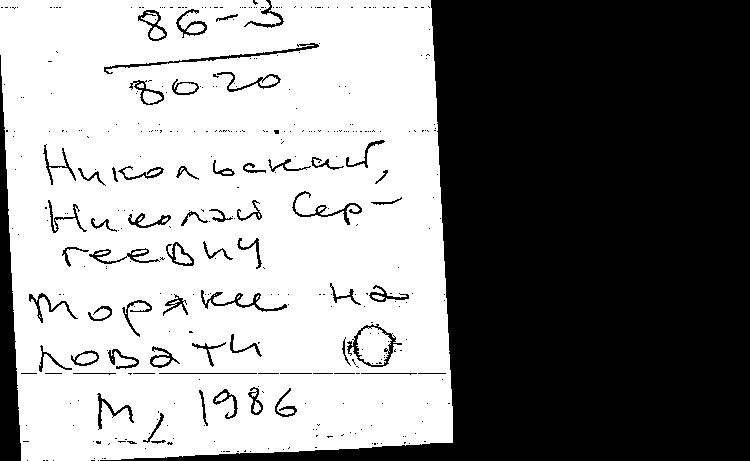 86-3
8020
Никольский,
Николай Сер-
геевич
Моряки на
ловати
М, 1986